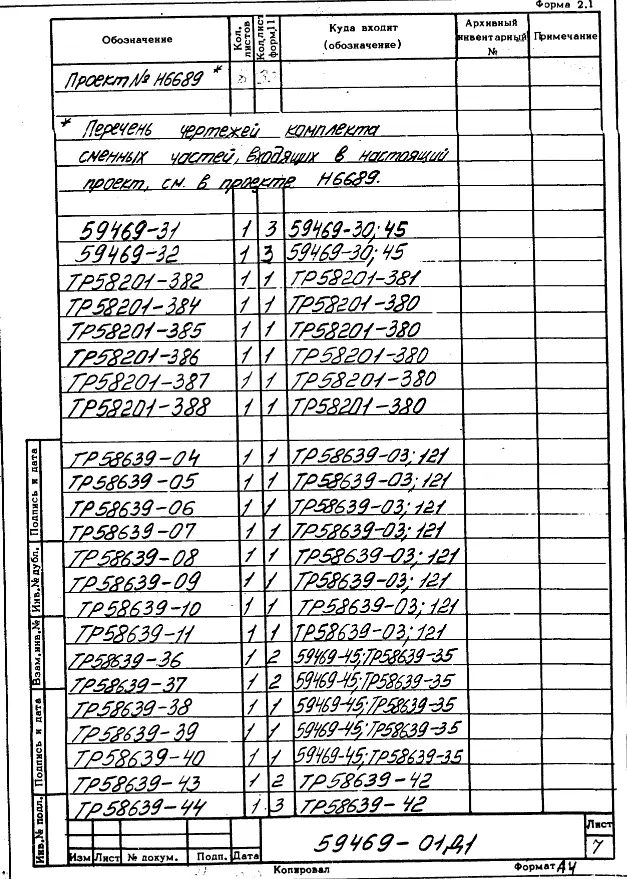 Форма 2.1
Обозначение Кол. листов Кол.лист форм.11 Куда входит (обозначение) Архивный инвентарный № Примечание
Проект № Н6689 *
* Перечень чертежей комплекта
сменных частей, входящих в настоящий
проект, см. в проекте Н6689.
59469-31 1 3 59469-30; 45
59469-32 1 3 59469-30; 45
ТР58201-382 1 1 ТР58201-381
ТР58201-384 1 1 ТР58201-380
ТР58201-385 1 1 ТР58201-380
ТР58201-386 1 1 ТР58201-380
ТР58201-387 1 1 ТР58201-380
ТР58201-388 1 1 ТР58201-380
ТР58639-04 1 1 ТР58639-03; 121
ТР58639-05 1 1 ТР58639-03; 121
ТР58639-06 1 1 ТР58639-03; 121
ТР58639-07 1 1 ТР58639-03; 121
ТР58639-08 1 1 ТР58639-03; 121
ТР58639-09 1 1 ТР58639-03; 121
ТР58639-10 1 1 ТР58639-03; 121
ТР58639-11 1 1 ТР58639-03; 121
ТР58639-36 1 2 59469-45; ТР58639-35
ТР58639-37 1 2 59469-45; ТР58639-35
ТР58639-38 1 1 59469-45; ТР58639-35
ТР58639-39 1 1 59469-45; ТР58639-35
ТР58639-40 1 1 59469-45; ТР58639-35
ТР58639-43 1 2 ТР58639-42
ТР58639-44 1 3 ТР58639-42
Подпись и дата
Инв.№ дубл.
Взам.инв.№
Подпись и дата
Инв.№ подл.
Изм Лист № докум. Подп. Дата
59469-01Д1
Лист
7
Копировал Формат А4